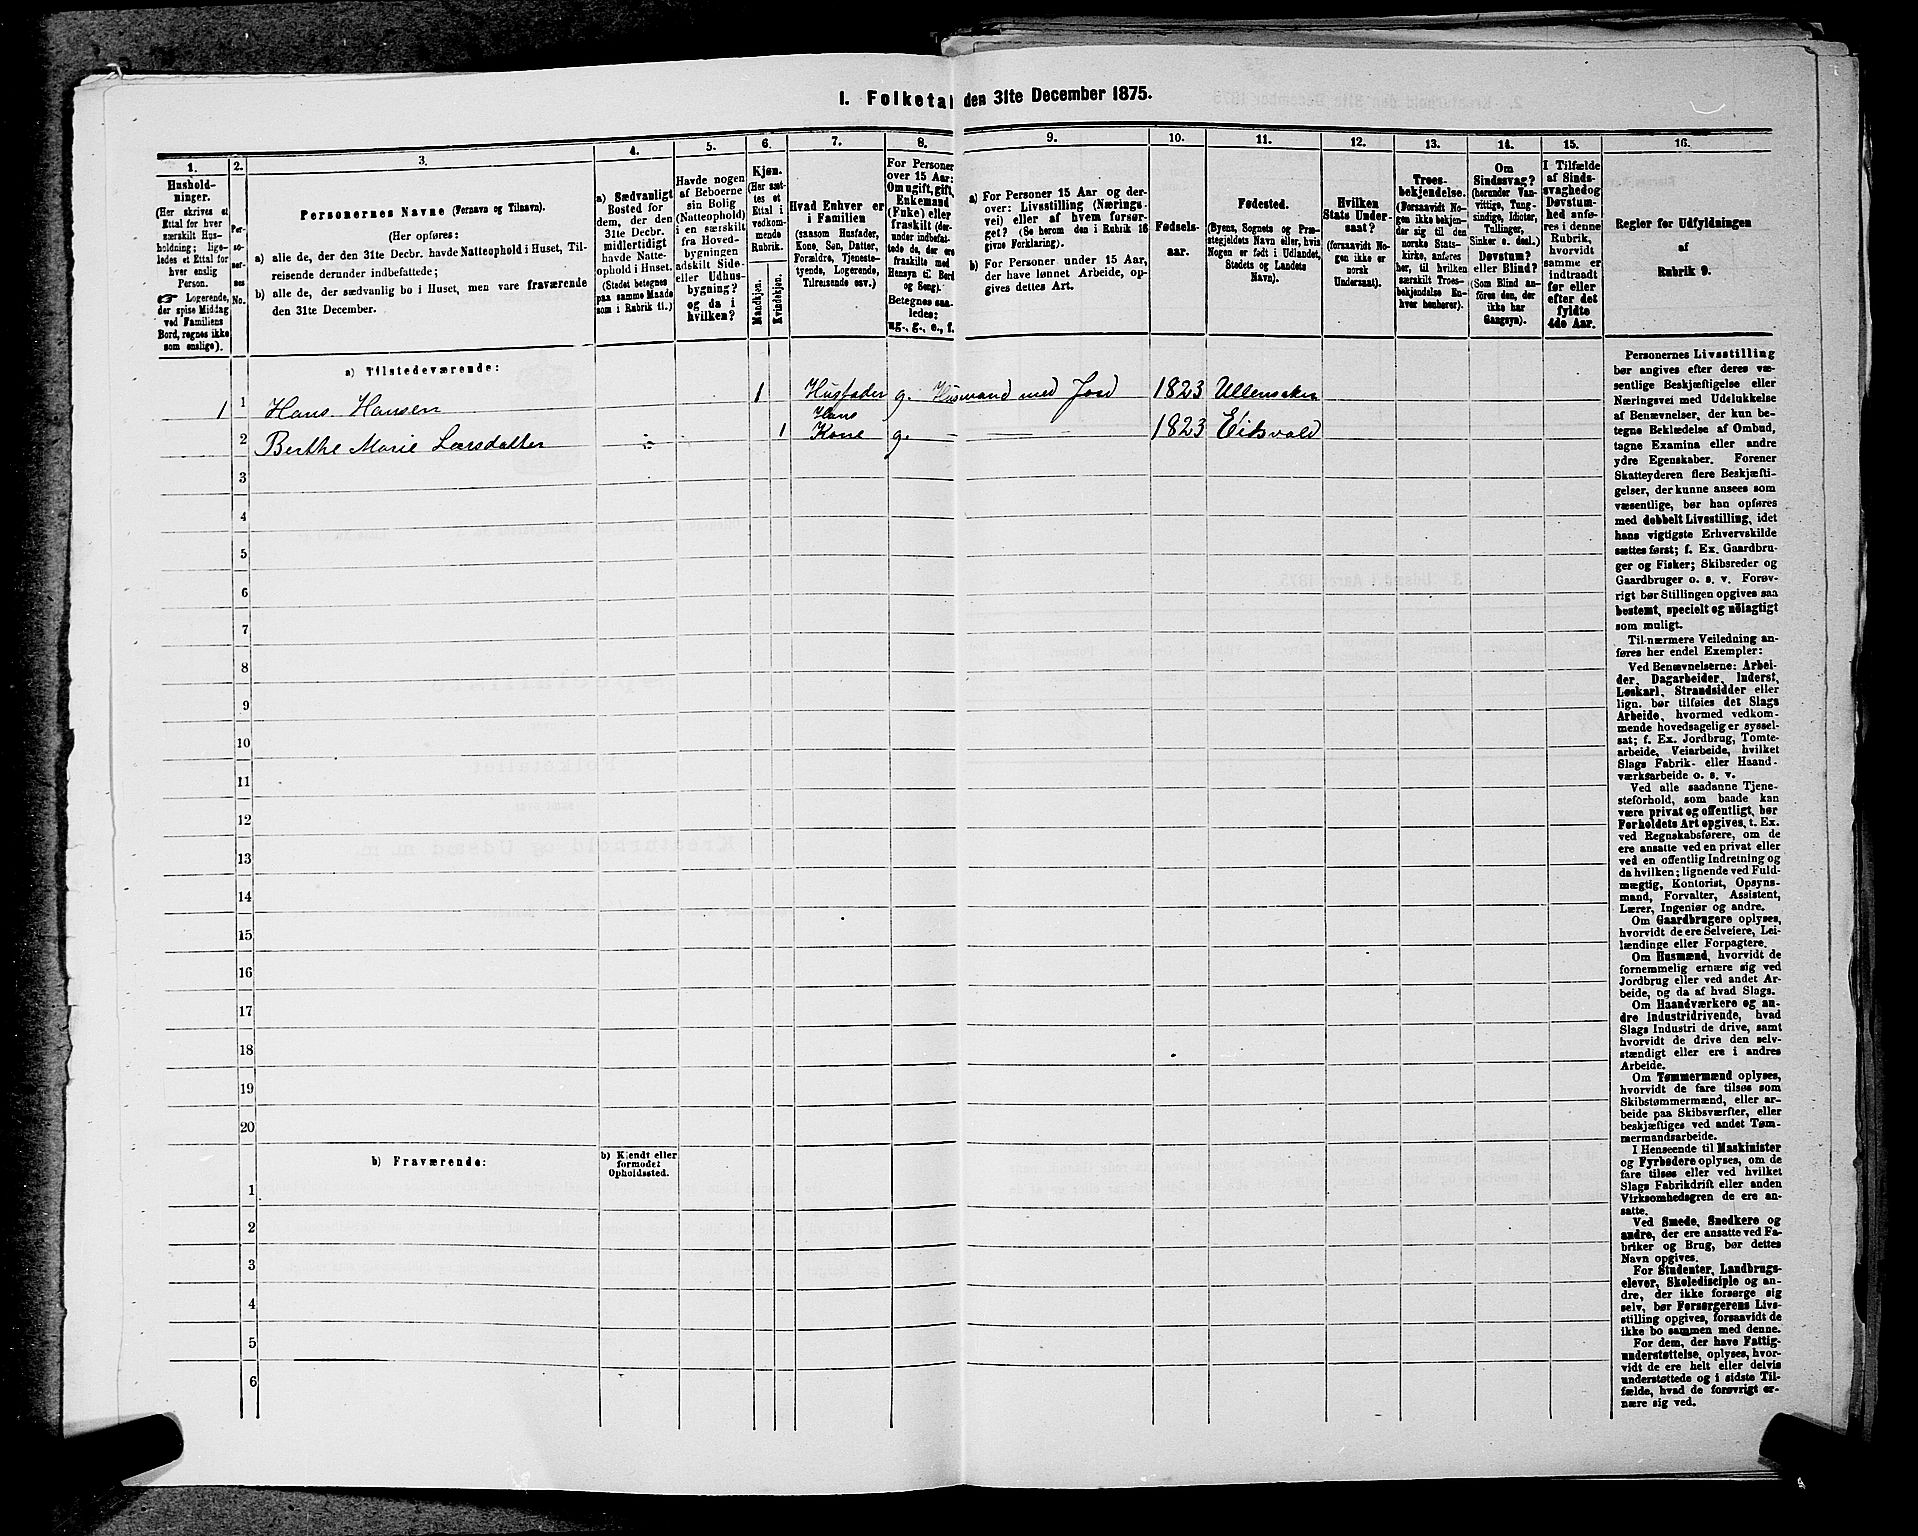 I. Folketal den 31te December 1875.
1.
2.
3.
4.
5.
6.
7.
8.
9.
10.
11.
12.
13.
14.
15.
16.
Hushold-
ninger.
(Her skrives et
Ettal for hver
særskilt Hus-
holdning; lige-
ledes et Ettal for
hver enslig
Person.
☞ Logerende,
der spise Middag
ved Familiens
Bord, regnes ikke
som enslige).
Per-
so-
ner-
nes
No.
Personernes Navne (Fornavn og Tilnavn).
(Her opføres:
a) alle de, der den 31te Decbr. havde Natteophold i Huset, Til-
reisende derunder indbefattede;
b) alle de, der sædvanlig bo i Huset, men vare fraværende
den 31te December.
a) Sædvanligt
Bosted for
dem, der den
31te Decbr.
midlertidigt
havde Natte-
ophold i Huset.
(Stedet betegnes
paa samme Maade
som i Rubrik 11.)
Havde nogen
af Beboerne
sin Bolig
(Natteophold)
i en særskilt
fra Hoved-
bygningen
adskilt Side-
eller Udhus-
bygning?
og da i
hvilken?
Kjøn.
(Her sæt-
tes et
Ettal i
vedkom-
mende
Rubrik.
Mandkjøn.
Kvindekjøn.
Hvad Enhver er
i Familien
(saasom Husfader,
Kone, Søn, Datter,
Forældre, Tjeneste-
tyende, Logerende,
Tilreisende osv.)
For Personer
over 15 Aar:
Om ugift, gift,
Enkemand
(Enke) eller
fraskilt (der-
under indbefat-
tede de, der ere
fraskilte med
Hensyn til Bord
og Seng).
Betegnes saa-
ledes:
ug., g., e., f.
a) For Personer 15 Aar og der-
over: Livsstilling (Nærings-
vei) eller af hvem forsør-
get? (Se herom den i Rubrik 16
givne Forklaring).
b) For Personer under 15 Aar,
der have lønnet Arbeide, op-
gives dettes Art.
Fødsels-
aar.
Fødested.
(Byens, Sognets og Præ-
stegjeldets Navn eller, hvis
Nogen er født i Udlandet,
Stedets og Landets
Navn).
Hvilken
Stats Under-
saat?
(forsaavidt No-
gen ikke er
norsk
Undersaat).
Troes-
bekjendelse.
(Forsaavidt No-
gen ikke bekjen-
der sig til den
norske Stats-
kirke, anføres
her, til hvilken
særskilt Troes-
bekjendelse En-
hver henhører).
Om
Sindssvag?
(herunder Van-
vittige, Tung-
sindige, Idioter,
Tullinger,
Sinker o. desl.).
Døvstum?
eller Blind?
(Som Blind an-
føres den, der
ikke har
Gangsyn).
I Tilfælde
af Sinds-
svaghed og
Døvstum-
hed anfø-
res i denne
Rubrik,
hvorvidt
samme er
indtraadt
før eller
efter det
fyldte
4de Aar.
Regler for Udfyldningen
af
Rubrik 9.
a) Tilstedeværende:
1 1 Hans Hansen 1 Husfader g. Husmand med Jord 1823 Ullensaker
2 Berthe Marie Larsdatter 1 Hans Kone g. 1823 Eidsvold
3
4
5
6
7
8
9
10
11
12
13
14
15
16
17
18
19
20
b) Fraværende:
b) Kjendt eller
formodet
Opholdssted.
1
2
3
4
5
6
Personernes Livsstilling
bør angives efter deres væ-
sentlige Beskjæftigelse eller
Næringsvei med Udelukkelse
af Benævnelser, der kun be-
tegne Beklædelse af Ombud,
tagne Examina eller andre
ydre Egenskaber. Forener
Skatteyderen flere Beskjæfti-
gelser, der kunne ansees som
væsentlige, bør han opføres
med dobbelt Livsstilling, idet
hans vigtigste Erhvervskilde
sættes først; f. Ex. Gaardbru-
ger og Fisker; Skibsreder og
Gaardbruger o. s. v. Forøv-
rigt bør Stillingen opgives saa
bestemt, specielt og nöiagtigt
som muligt.
Til nærmere Veiledning an-
føres her endel Exempler:
Ved Benævnelserne: Arbei-
der, Dagarbeider, Inderst,
Løskarl, Strandsidder eller
lign. bør tilføies det Slags
Arbeide, hvormed vedkom-
mende hovedsagelig er syssel-
sat; f. Ex. Jordbrug, Tomte-
arbeide, Veiarbeide, hvilket
Slags Fabrik- eller Haand-
værksarbeide o. s. v.
Ved alle saadanne Tjene-
steforhold, som baade kan
være privat og offentligt, bør
Forholdets Art opgives, t. Ex.
ved Regnskabsførere, om de
ere ansatte ved en privat eller
ved en offentlig Indretning og
da hvilken; lignende ved Fuld-
mægtig, Kontorist, Opsyns-
mand, Forvalter, Assistent,
Lærer, Ingeniør og andre.
Om Gaardbrugere oplyses,
hvorvidt de ere Selveiere, Lei-
lændinge eller Forpagtere.
Om Husmænd, hvorvidt de
fornemmelig ernære sig ved
Jordbrug eller ved andet Ar-
beide, og da af hvad Slags.
Om Haandværkere og an-
dre Industridrivende, hvad
Slags Industri de drive, samt
hvorvidt de drive den selv-
stændigt eller ere i andres
Arbeide.
Om Tømmermænd oplyses,
hvorvidt de fare tilsøs som
Skibstømmermænd, eller ar-
beide paa Skibsværfter, eller
beskjæftiges ved andet Tøm-
mermandsarbeide.
I Henseende til Maskinister
og Fyrbødere oplyses, om de
fare tilsøs eller ved hvilket
Slags Fabrikdrift eller anden
Virksomhedsgren de ere an-
satte.
Ved Smede, Snedkere og
andre, der ere ansatte ved Fa-
briker og Brug, bør dettes
Navn opgives.
For Studenter, Landbrugs-
elever, Skoledisciple og an-
dre, der ikke forsørge sig
selv, bør Forsørgerens Livs-
stilling opgives, forsaavidt de
ikke bo sammen med denne.
For dem, der have Fattig-
understøttelse, oplyses, hvor-
vidt de ere helt eller delvis
understøttede og i sidste Til-
fælde, hvad de forøvrigt er-
nære sig ved.